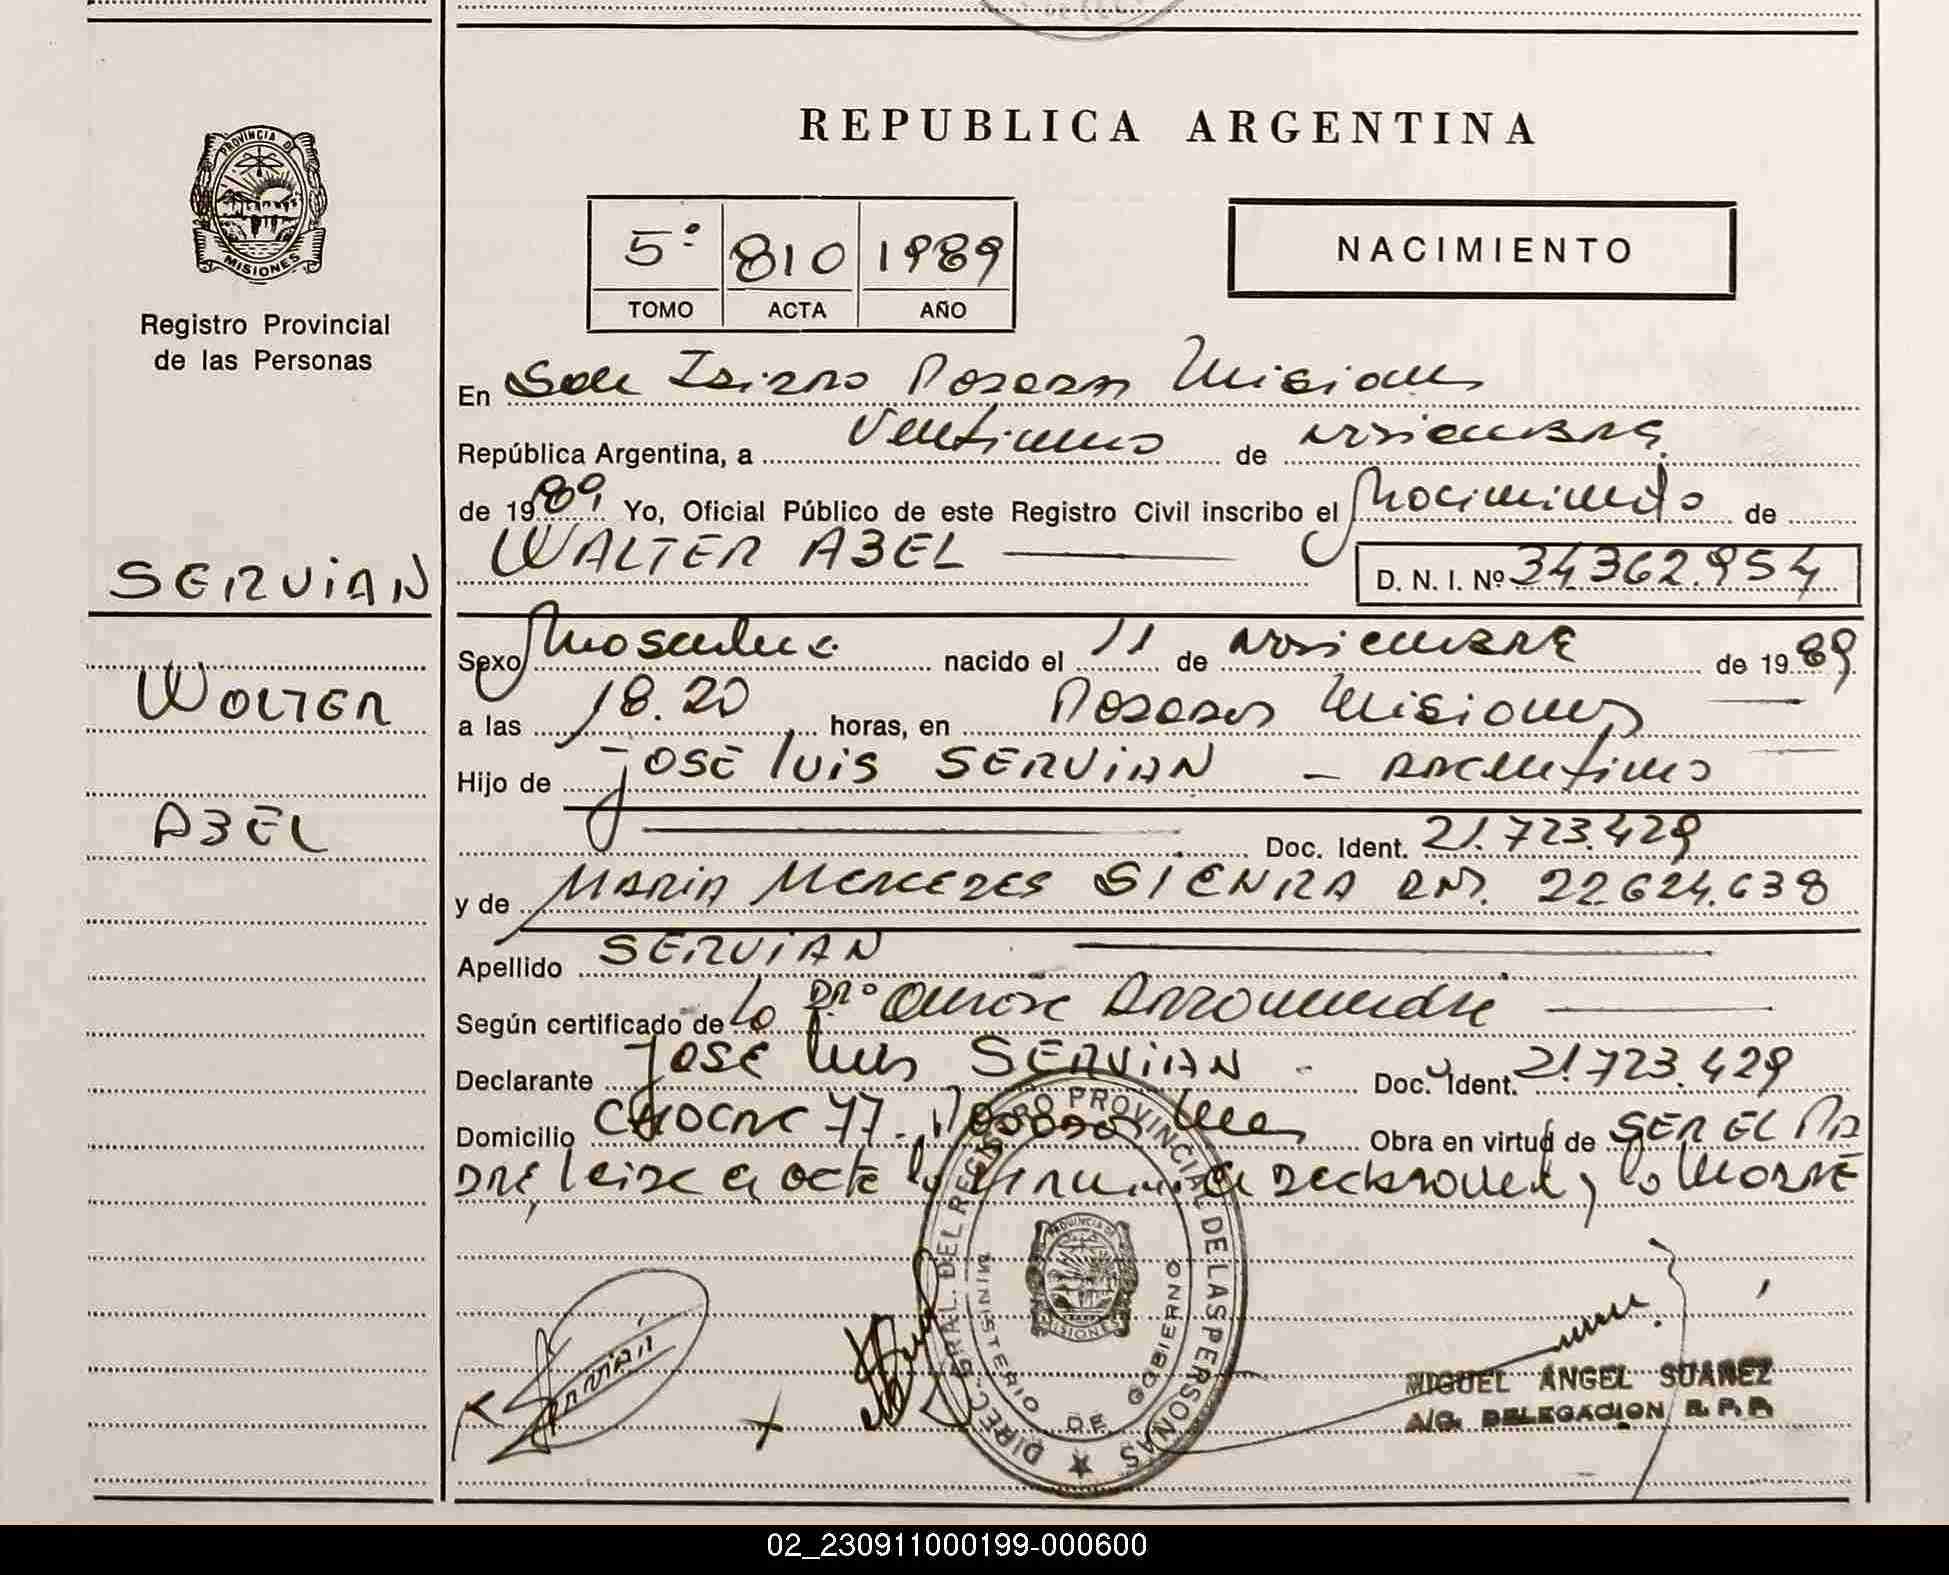 REPUBLICA ARGENTINA
PROVINCIA DE
MISIONES
Registro Provincial
de las Personas
5º 810 1989
TOMO ACTA AÑO
NACIMIENTO
En San Isidro Posadas Misiones
República Argentina, a Veintiuno de noviembre
de 1989 Yo, Oficial Público de este Registro Civil inscribo el Nacimiento de
SERVIAN
WALTER ABEL D. N. I. Nº 34.362.954
Sexo Masculino nacido el 11 de noviembre de 1989
WALTER
a las 18.20 horas, en Posadas Misiones
Hijo de JOSE LUIS SERVIAN - argentino
ABEL
Doc. Ident. 21.723.429
y de MARIA MERCEDES SIENRA 22.624.638
Apellido SERVIAN
Según certificado de la Dra
Declarante JOSE Luis SERVIAN - Doc. Ident. 21.723.429
Domicilio 77. Posadas Obra en virtud de SER EL PA
DRE, leida el acta la el declarante y la MADRE
DIREC. GRAL. DEL REGISTRO PROVINCIAL DE LAS PERSONAS
MINISTERIO DE GOBIERNO
PROVINCIA DE
MISIONES
Servian
MIGUEL ANGEL SUAREZ
A/C. DELEGACION R. P. P.
02_230911000199-000600